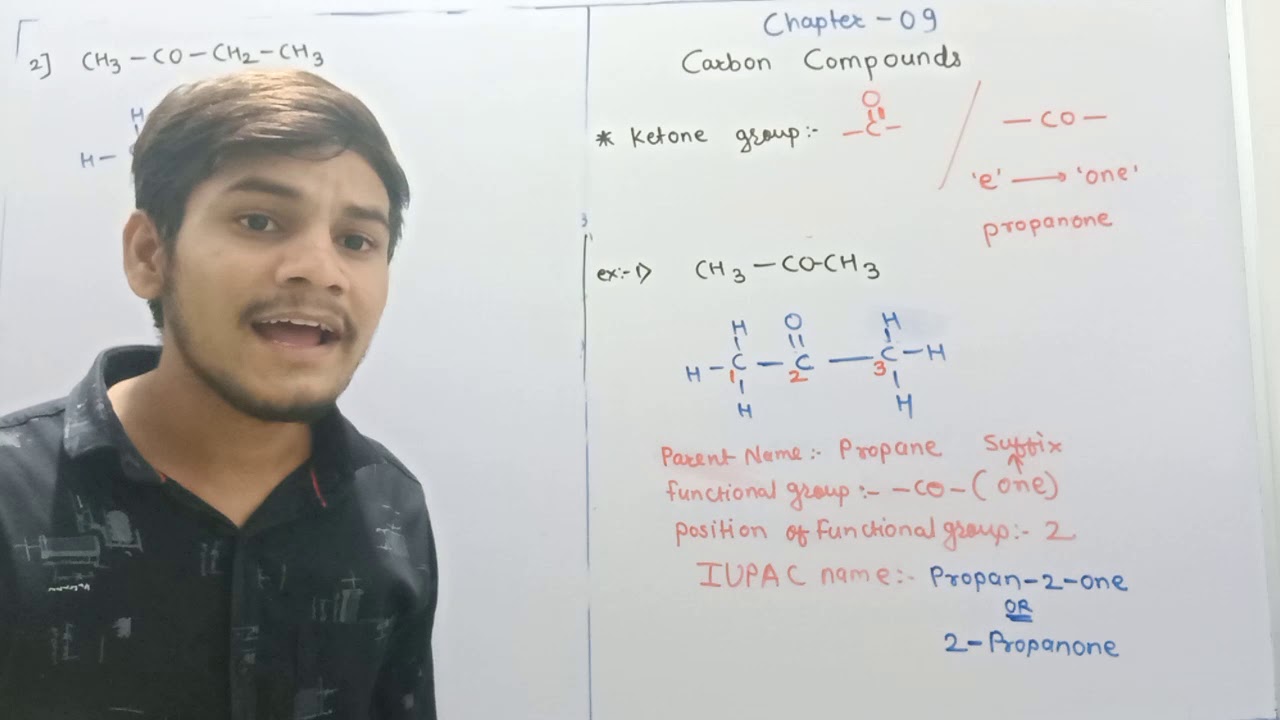 2] CH3 – CO – CH2 – CH3
H
H –
Chapter – 09
Carbon Compounds
* Ketone group :-
O
||
– C –
/ – CO –
'e' → 'one'
propanone
ex:- 1) CH3 – CO–CH3
H O H
| || |
H – C – C — C – H
1 2 3
| |
H H
Parent Name :- Propane Suffix
↑
functional group :- – CO – ( one )
position of functional group :- 2
IUPAC name :- Propan-2-one
OR
2-Propanone